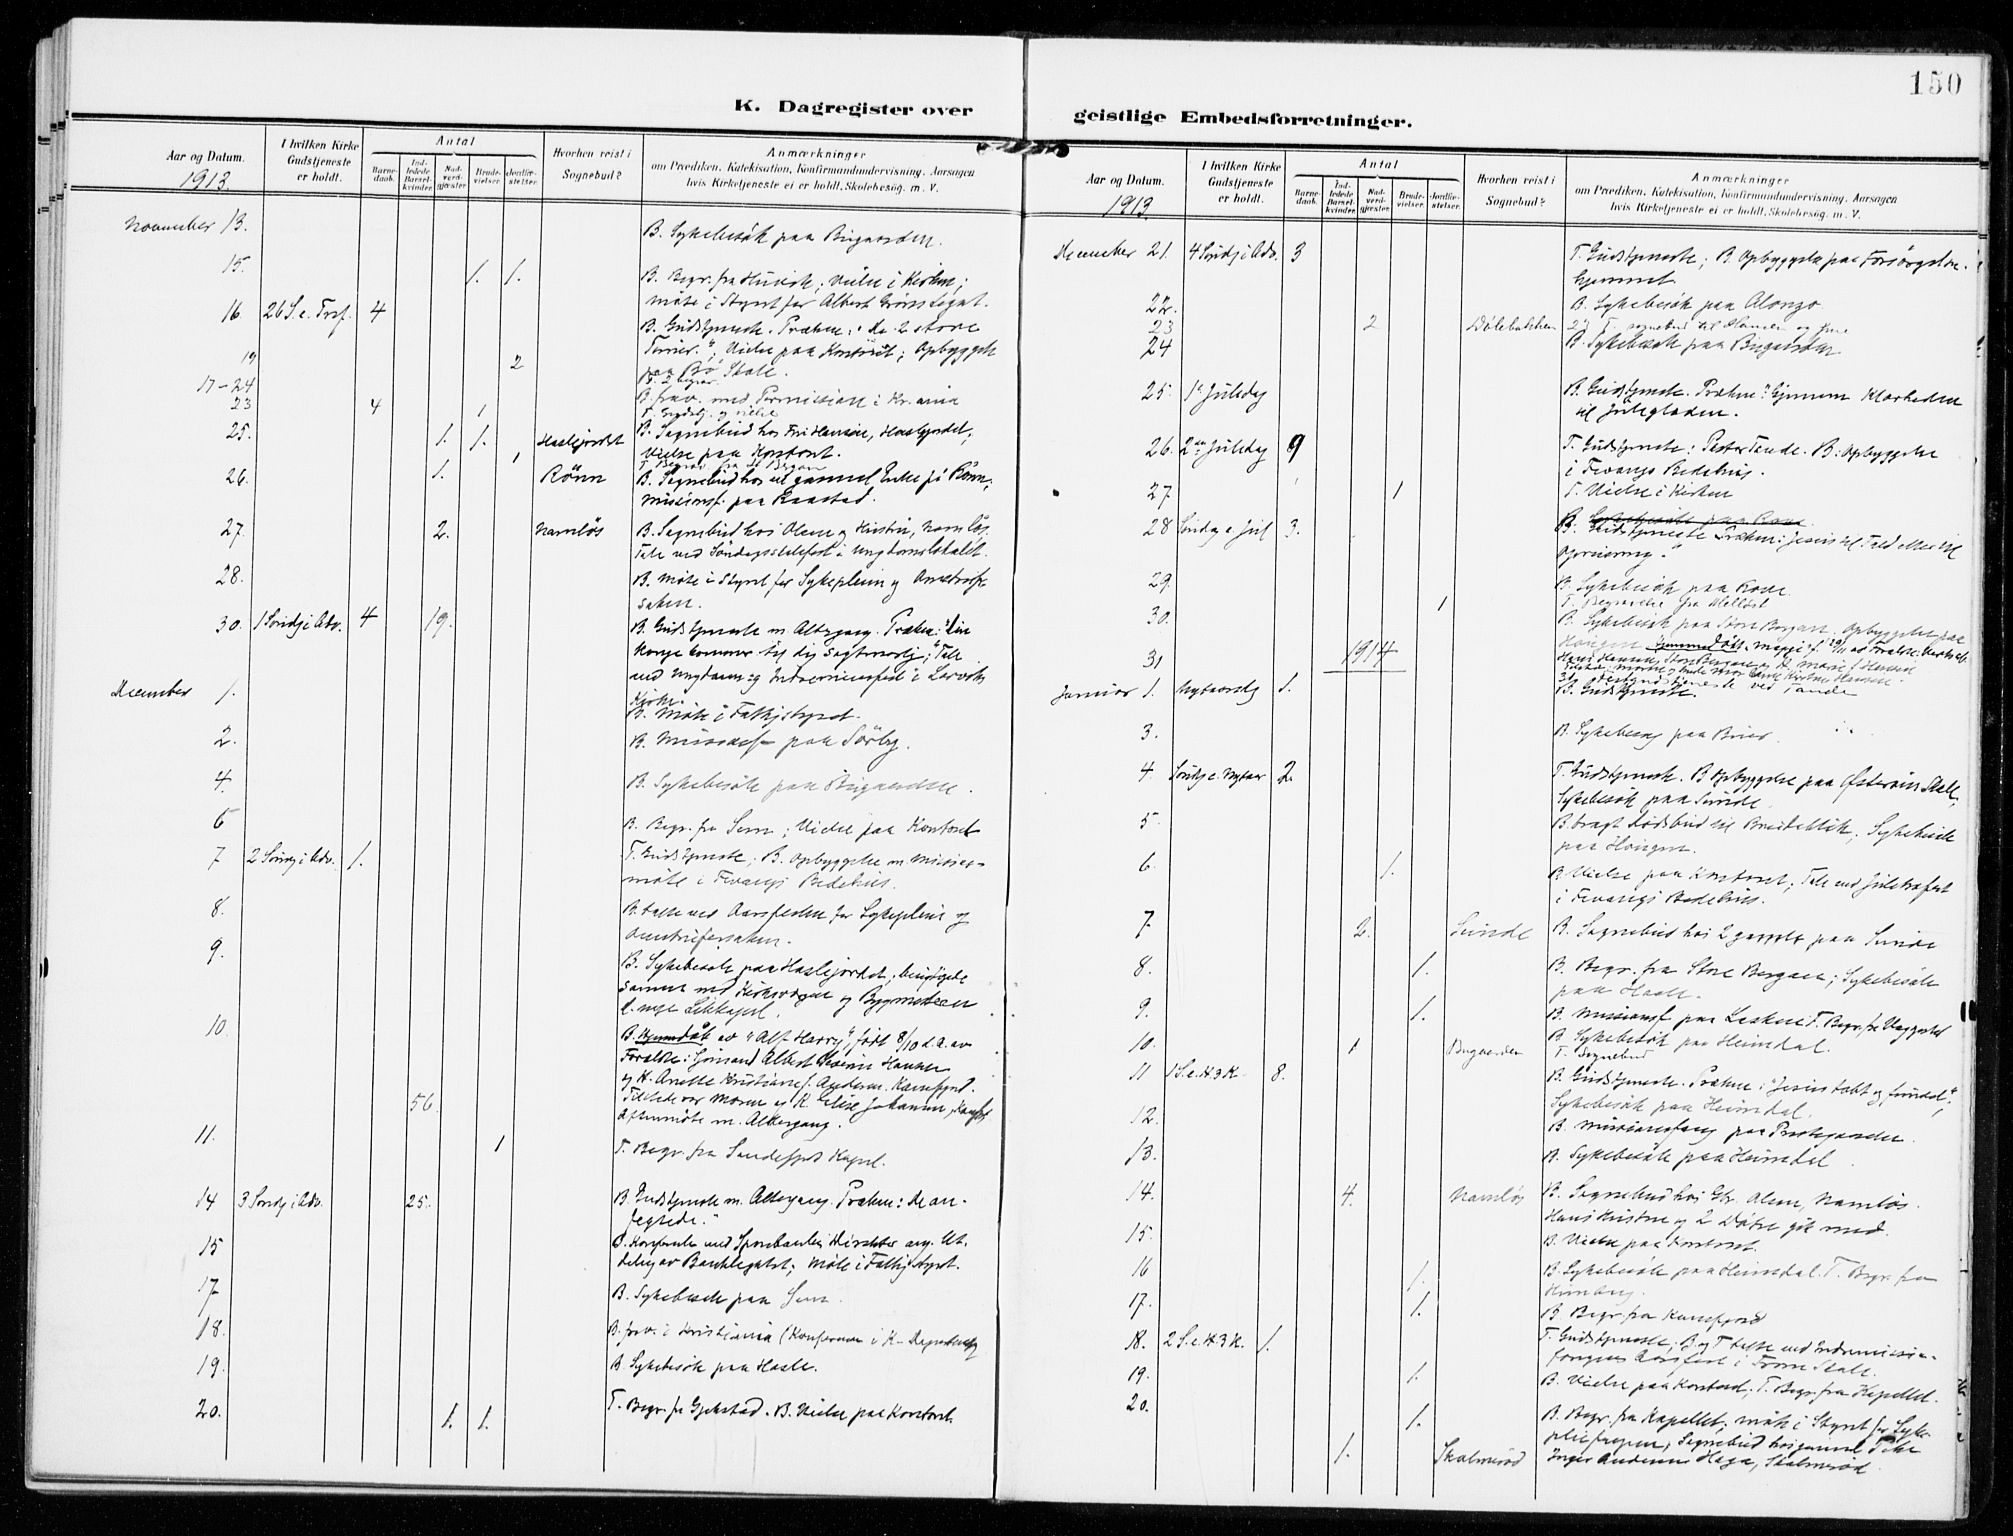 150
K. Dagregister over
geistlige Embedsforretninger.
Aar og Datum.
1913.
I hvilken Kirke
Gudstjeneste
er holdt.
Antal
Barne-
daab.
Ind-
ledede
Barsel-
kvinder.
Nad-
verd-
gjæster
Brude-
vielser
Jordfæ-
stelser
Hvorhen reist i
Sognebud?
Anmærkninger
om Prædiken, Katekisation, Konfirmandundervisning, Aarsagen
hvis Kirketjeneste ei er holdt, Skolebesøg, m. V.
November 13.
B. Sykebesøk paa Bugaarden.
15. 1. 1.
B. Begr. fra ; Vielse i Kirken;
møte i Styret for Albert Legat.
16. 26 S. e. Tref. 4
B. Gudstjeneste. Præken: "De 2 store
"; Vielse paa Kontoret; Opbyggelse
paa Bø Skole.
19 2
B. 2 begrav.
17–24
B. frav. med Permission i Kr.ania
23 4 1
T. Gudstj. og vielse
25. 1. 1. Haslejordet
B. Sognebud hos Hansen, Haslejordet;
Vielse paa Kontoret.
1
T. Begrav. fra St. Bergan
26. 1. Rønn
B. Sognebud hos en gammel Enke på Rønn;
Missionsf. paa Raastad.
27. 2. Namløs
B. Sognebud hos Olsen og Hustru, Namløs.
Tale ved i Ungdomslokalet.
28.
B. Møte i Styret for Sykepleien og
saken.
30. 1 Søndg i Adv. 4 19.
B. Gudstjeneste m. Altergang. Præken: "Din
Konge kommer til dig sagtmodig"; Tale
ved Ungdoms og Indremissionsfest i Larviks
Kirke.
December 1.
B. Møte i Fattigstyret.
2.
B. Missionsf. paa Sørby.
4.
B. Sykebesøk paa Bugaarden.
6
B. Begr. fra Sem; Vielse paa Kontoret
7 2 Søndg i Adv. 1.
T. Gudstjeneste; B. Opbyggelse m. Missions-
møte i Fevangs Bedehus.
8.
B. talte ved Aarsfesten for Sykepleie og
9.
B. Sykebesøk paa Haslejordet; besøgte
sammen med Kirkevergen og Bygmesteren
d. nye Likkapel.
10.
B. Hjemmedåb av "Alf Harry", født 8/10 d.a. av
Foreldre: Albert Hansen
og H. Anette Kristiane f. Andersen. Kamfjord.
Tilstede var Moren og K. Elise Johansen, Kamfjord
56.
Aftenmøte m. Altergang.
11. 1
T. Begr. fra Sandefjord Kapel.
14 3 Søndg i Adv. 25.
B. Gudstjeneste m. Altergang. Præken: "De an-
fegtede."
15
B. Konferanse med Sparebankens Direktør ang. Ut-
deling av Banklegatet; Møte i Fattigstyret.
17.
B. Sykebesøk paa Sem.
18.
B. frav. i Kristiania (Konferanse i K-Departementet)
19.
B. Sykebesøk paa Hasle.
20. 1. 1.
T. Begr. fr Gjekstad. B. Vielse paa Kontoret
Aar og Datum.
1913.
I hvilken Kirke
Gudstjeneste
er holdt.
Antal
Barne-
daab.
Ind-
ledede
Barsel-
kvinder.
Nad-
verd-
gjæster
Brude-
vielser.
Jordfæ-
stelser.
Hvorhen reist i
Sognebud?
Anmærkninger
om Prædiken, Katekisation, Konfirmandundervisning, Aarsagen
hvis Kirketjeneste ei er holdt, Skolebesøg, m. V.
December 21. 4 Søndg i Adv. 3
T. Gudstjeneste; B. Opbyggelse paa Forsørgelses-
hjemmet
22.
B. Sykebesøk paa Alonzo
23 2 Dølebakken
23 T. sognebud til Hansen og
24
B. Sykebesøk paa Bugaarden
25. 1ste Juledag
B. Gudstjeneste. Præken: "Gjennem Klarheden
til Juleglæden.
26. 2den Juledag 9
T. Gudstjeneste: Pastor Tande. B: Opbyggelse
i Fevangs Bedehus.
27 1
T. Vielse i Kirken
28 Søndag e. Jul 3.
B. Gudstjeneste Præken: Jesus til Fald eller til
Opreisning."
29.
B. Sykebesøk paa
1
T. Begravelse fra
30.
B. Sykebesøk paa Store Bergan. Opbyggelse paa
Haugen
31
31. Gudstjeneste ved Tande
1914
Januar 1. Nytaarsdg 1.
B. Gudstjeneste.
3.
B. Sykebesøg paa
4. Søndg e. Nytaar 2.
T. Gudstjeneste. B Opbyggelse paa Østerøens Skole,
Sykebesøk paa Sunde.
5.
B. bragt Dødsbud til Breidablik; Sykebesøk
paa Haugen.
6. 1.
B. Vielse paa Kontoret; Tale ved Juletræfest
i Fevangs Bedehus.
7. 2. Sunde
B. Sognebud hos 2 gamle paa Sunde
8. 1.
B. Begr. fra Store Bergan; Sykebesøk
paa Hasle.
9. 1.
B. Missionsf. paa T. Begr. fra
10. 1 Bugaarden
B. Sykebesøk paa Heimdal.
T. Sognebud
11 1 S. e. H3K. 8.
B. Gudstjeneste. Præken: "Jesus tabt og fundet";
Sykebesøk paa Heimdal.
12.
B. Missionsforeng paa Prestegaarden.
13.
B. Sykebesøk paa Heimdal.
14. 4. Namløs
B. Sognebud hos Olsen, Namløs.
Hans Hustru og 2 Døtre gik med.
15.
B. Vielse paa Kontoret.
16 1.
B. Sykebesøk paa Heimdal. T. Begr. fra
17. 1.
B. Begr. fra Kamfjord
18. 2 S. e. H3K. 1.
T. Gudstjeneste; B og T talte ved Indremissions-
foreningens Aarsfest i Skole.
19. 1.
B. Vielse paa Kontoret; T. Begr. fra Kapellet.
20. 1.
B. Begr. fra Kapellet; møte i Styret for Syke-
pleieforeningen; Sognebud hos gammel Enke
1. Skalmerød
Inger Andersen Haga, Skalmerød.